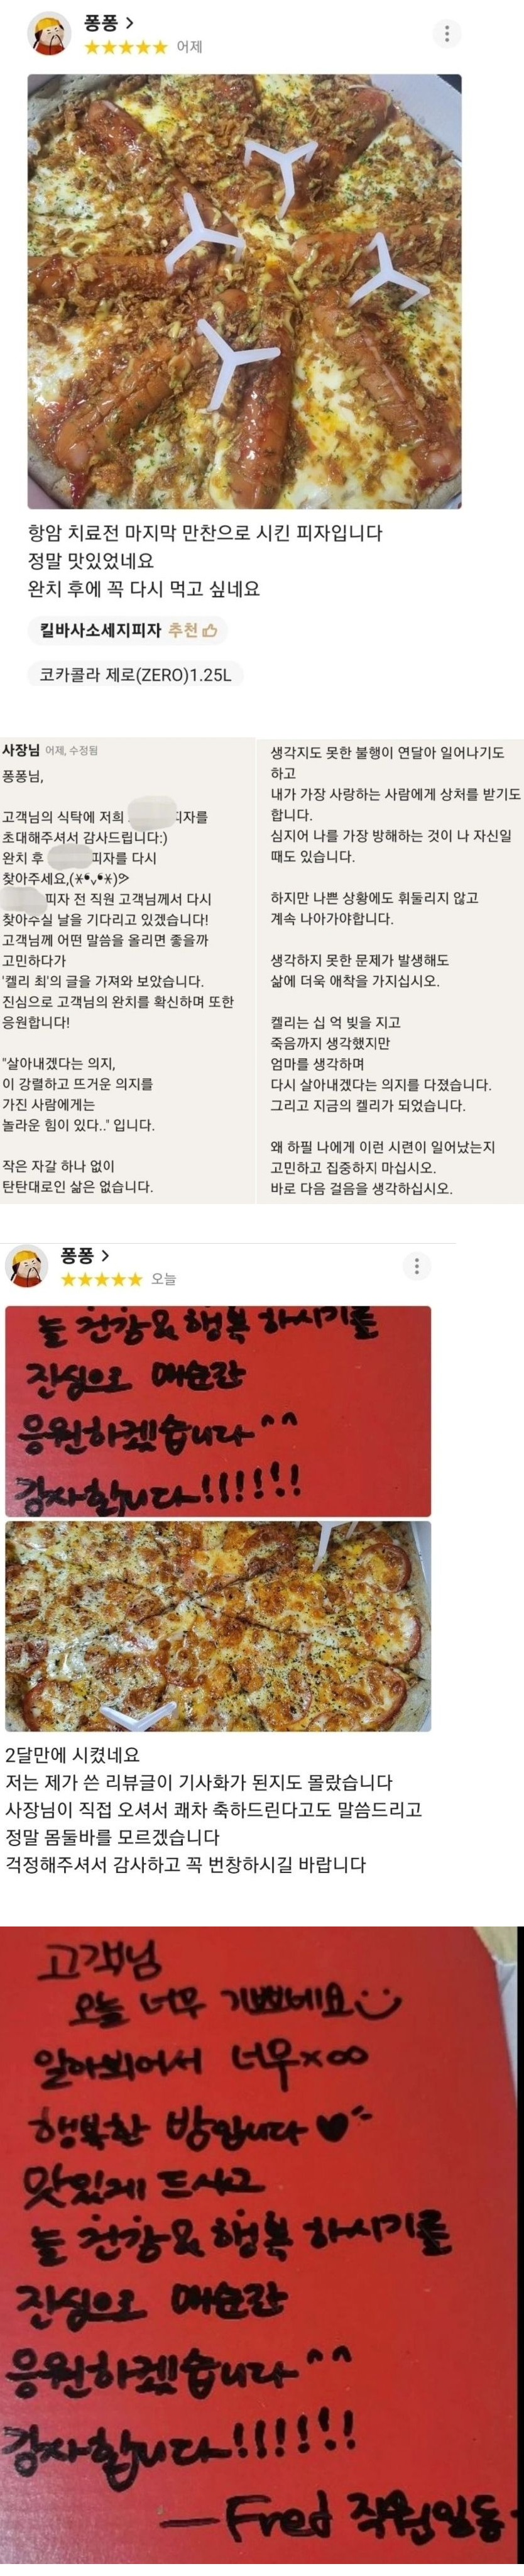 퐁퐁 >
★★★★★ 어제
항암 치료전 마지막 만찬으로 시킨 피자입니다
정말 맛있었네요
완치 후에 꼭 다시 먹고 싶네요
킬바사소세지피자 추천
코카콜라 제로(ZERO)1.25L
사장님 어제, 수정됨
퐁퐁님,
고객님의 식탁에 저희 피자를
초대해주셔서 감사드립니다:)
완치 후 피자를 다시
찾아주세요,(⁎❛ᴗ❛⁎)୨
피자 전 직원 고객님께서 다시
찾아주실 날을 기다리고 있겠습니다!
고객님께 어떤 말씀을 올리면 좋을까
고민하다가
'켈리 최'의 글을 가져와 보았습니다.
진심으로 고객님의 완치를 확신하며 또한
응원합니다!
"살아내겠다는 의지,
이 강렬하고 뜨거운 의지를
가진 사람에게는
놀라운 힘이 있다.." 입니다.
작은 자갈 하나 없이
탄탄대로인 삶은 없습니다.
생각지도 못한 불행이 연달아 일어나기도
하고
내가 가장 사랑하는 사람에게 상처를 받기도
합니다.
심지어 나를 가장 방해하는 것이 나 자신일
때도 있습니다.
하지만 나쁜 상황에도 휘둘리지 않고
계속 나아가야합니다.
생각하지 못한 문제가 발생해도
삶에 더욱 애착을 가지십시오.
켈리는 십 억 빚을 지고
죽음까지 생각했지만
엄마를 생각하며
다시 살아내겠다는 의지를 다졌습니다.
그리고 지금의 켈리가 되었습니다.
왜 하필 나에게 이런 시련이 일어났는지
고민하고 집중하지 마십시오.
바로 다음 걸음을 생각하십시오.
퐁퐁 >
★★★★★ 오늘
늘 건강&행복 하시기를
진심으로 매순간
응원하겠습니다^^
감사합니다!!!!!!
2달만에 시켰네요
저는 제가 쓴 리뷰글이 기사화가 된지도 몰랐습니다
사장님이 직접 오셔서 쾌차 축하드린다고도 말씀드리고
정말 몸둘바를 모르겠습니다
걱정해주셔서 감사하고 꼭 번창하시길 바랍니다
고객님
오늘 너무 기쁘네요
알아뵈어서 너무×∞
행복한 밤입니다♥
맛있게 드시고
늘 건강&행복 하시기를
진심으로 매순간
응원하겠습니다^^
감사합니다!!!!!!
—Fred 직원일동-